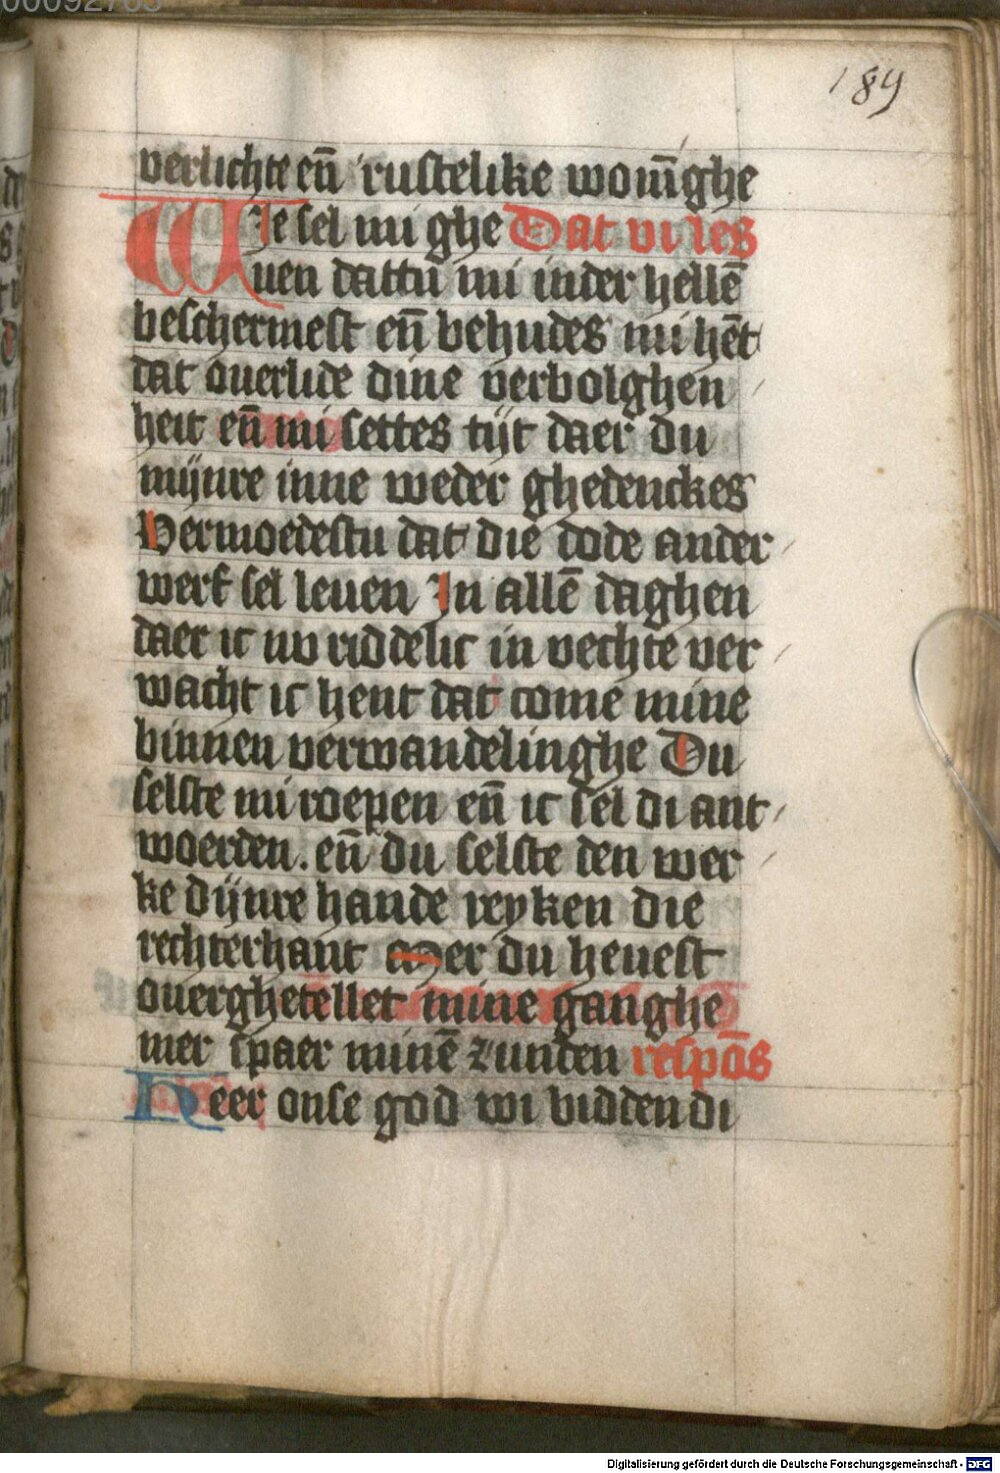 00092765
189
verlichte en̄ rustelike wom̄ghe
Wie sel mi ghe Dat vi les
uen dattu mi inder hellē
beschermest en̄ behudes mi hēt
dat ouerlide dine verbolghen
heit en̄ mi settes tijt daer du
mijnre inne weder ghedenckes
Vermoedestu dat die dode ander
werf sel leuen In allē daghen
daer ic nv riddelic in vechte ver
wacht ic hent dat come mine
binnen verwandelinghe Du
selste mi roepen en̄ ic sel di ant
woerden. en̄ du selste den wer
ke dijnre hande reyken die
rechterhant Mer du heuest
ouerghetellet mine ganghe
mer spaer minē zunden respōs
Heer onse god wi bidden di
Digitalisierung gefördert durch die Deutsche Forschungsgemeinschaft - DFG